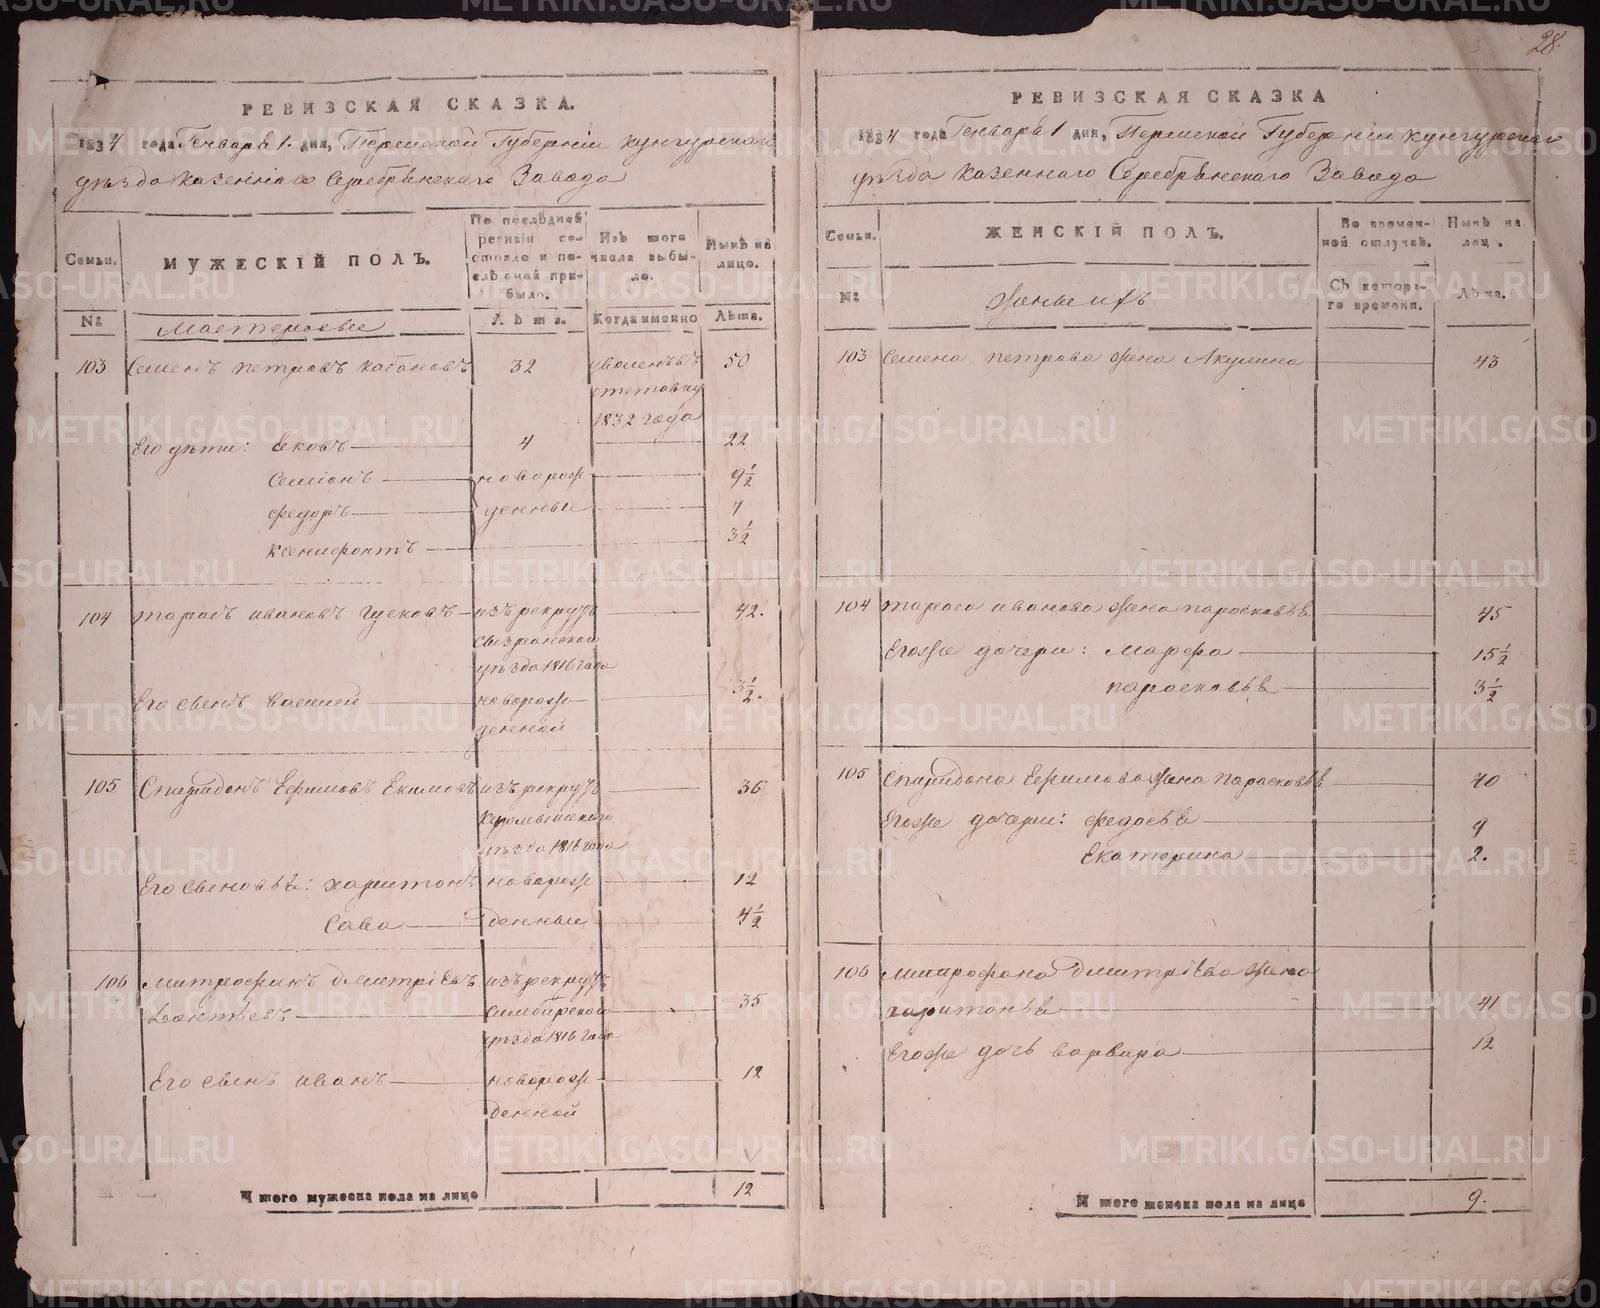 28.
РЕВИЗСКАЯ СКАЗКА.
1834 года Генваря 1. дня, Пермской Губерніи Кунгурскаго
уѣзда Казеннаго Серебрѣнскаго Завода
Семьи.
МУЖЕСКІЙ ПОЛЪ.
По послѣдней ревизіи состояло и послѣ оной прибыло.
Изъ того числа выбыло.
Нынѣ на лицо.
№
Мастеровые
Лѣта.
Когда именно
Лѣта.
103 Семенъ Петровъ Кабановъ 32 уволенъ въ 50
отставку
1832 года
Его дѣти: Яковъ 4 22
Семіонъ новорож 9½
Федоръ денные 7
Ксенифонтъ 3½
104 Тарасъ Ивановъ Гусковъ изъ рекрутъ 42.
Сызранскаго
уѣзда 1816 года
Его сынъ Василей новорож 3½.
денной
105 Спиридонъ Ефимовъ Екимовъ изъ рекрутъ 36
уѣзда 1816 года
Его сыновья: Харитонъ новорож 12
Сава денные 4½
106 Митрофанъ Дмитріевъ изъ рекрутъ
Леонтьевъ Симбирскаго 35
уѣзда 1816 года
Его сынъ Иванъ новорож 12
денной
Итого мужеска пола на лицо 12
РЕВИЗСКАЯ СКАЗКА
1834 года Генваря 1 дня, Пермской Губерніи Кунгурскаго
уѣзда Казеннаго Серебрѣнскаго Завода
Семьи.
ЖЕНСКІЙ ПОЛЪ.
Во временной отлучкѣ.
Нынѣ на лицо.
№
Жены ихъ
Съ котораго времени.
Лѣта.
103 Семена Петрова жена Акулина 43
104 Тараса Иванова жена Парасковья 45
Его же дочери: Марфа 15½
Парасковья 3½
105 Спиридона Ефимова жена Парасковья 40
Его же дочери: Федосья 9
Екатерина 2.
106 Митрофана Дмитріева жена
Харитонья 41
Его же дочь Варвара 12
Итого женска пола на лицо 9.
METRIKI.GASO-URAL.RU